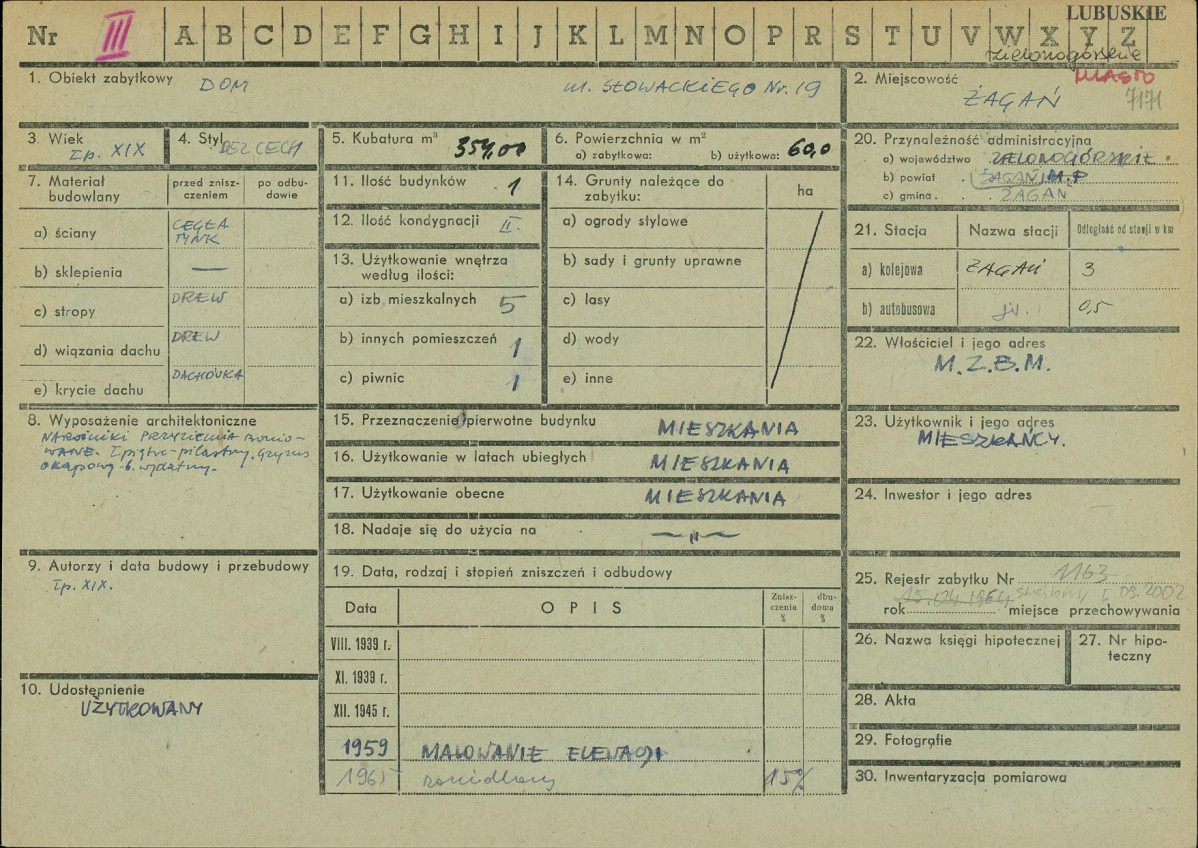 LUBUSKIE
Nr III A B C D E F G H I J K L M N O P R S T U V W X Y Z
zielonogórskie
1. Obiekt zabytkowy DOM ul. SŁOWACKIEGO Nr. 19
2. Miejscowość MIASTO
ŻAGAŃ 7171
3. Wiek
I p. XIX
4. Styl
BEZ CECH
5. Kubatura m³ 354,00
6. Powierzchnia w m²
a) zabytkowa: b) użytkowa: 60,0
20. Przynależność administracyjna
a) województwo ZIELONOGÓRSKIE
b) powiat ŻAGAŃ M.P
c) gmina ŻAGAŃ
7. Materiał budowlany
przed znisz-
czeniem
po odbu-
dowie
a) ściany CEGŁA
TYNK
b) sklepienia —
c) stropy DREW
d) wiązania dachu DREW
e) krycie dachu DACHÓWKA
11. Ilość budynków 1
12. Ilość kondygnacji II.
13. Użytkowanie wnętrza
według ilości:
a) izb mieszkalnych 5
b) innych pomieszczeń 1
c) piwnic 1
14. Grunty należące do
zabytku:
ha
a) ogrody stylowe
b) sady i grunty uprawne
c) lasy
d) wody
e) inne
21. Stacja Nazwa stacji Odległość od stacji w km
a) kolejowa ŻAGAŃ 3
b) autobusowa jw. 0,5
22. Właściciel i jego adres
M.Z.B.M.
8. Wyposażenie architektoniczne
NAROŻNIKI PRZYZIEMIA BONIO-
WANE. I piętro - pilastry. Gzyms
okapowy - b. wydatny.
15. Przeznaczenie pierwotne budynku MIESZKANIA
16. Użytkowanie w latach ubiegłych MIESZKANIA
17. Użytkowanie obecne MIESZKANIA
18. Nadaje się do użycia na —"—
23. Użytkownik i jego adres
MIESZKAŃCY.
24. Inwestor i jego adres
9. Autorzy i data budowy i przebudowy
I p. XIX.
10. Udostępnienie
UŻYTKOWANY
19. Data, rodzaj i stopień zniszczeń i odbudowy
Data OPIS
Znisz-
czenia
%
dbu-
dowa
%
VIII. 1939 r.
XI. 1939 r.
XII. 1945 r.
1959 MALOWANIE ELEWACJI
1965 15%
25. Rejestr zabytku Nr 1163
15.04.1964 skreślony I. 09.2002
rok miejsce przechowywania
26. Nazwa księgi hipotecznej
27. Nr hipo-
teczny
28. Akta
29. Fotografie
30. Inwentaryzacja pomiarowa